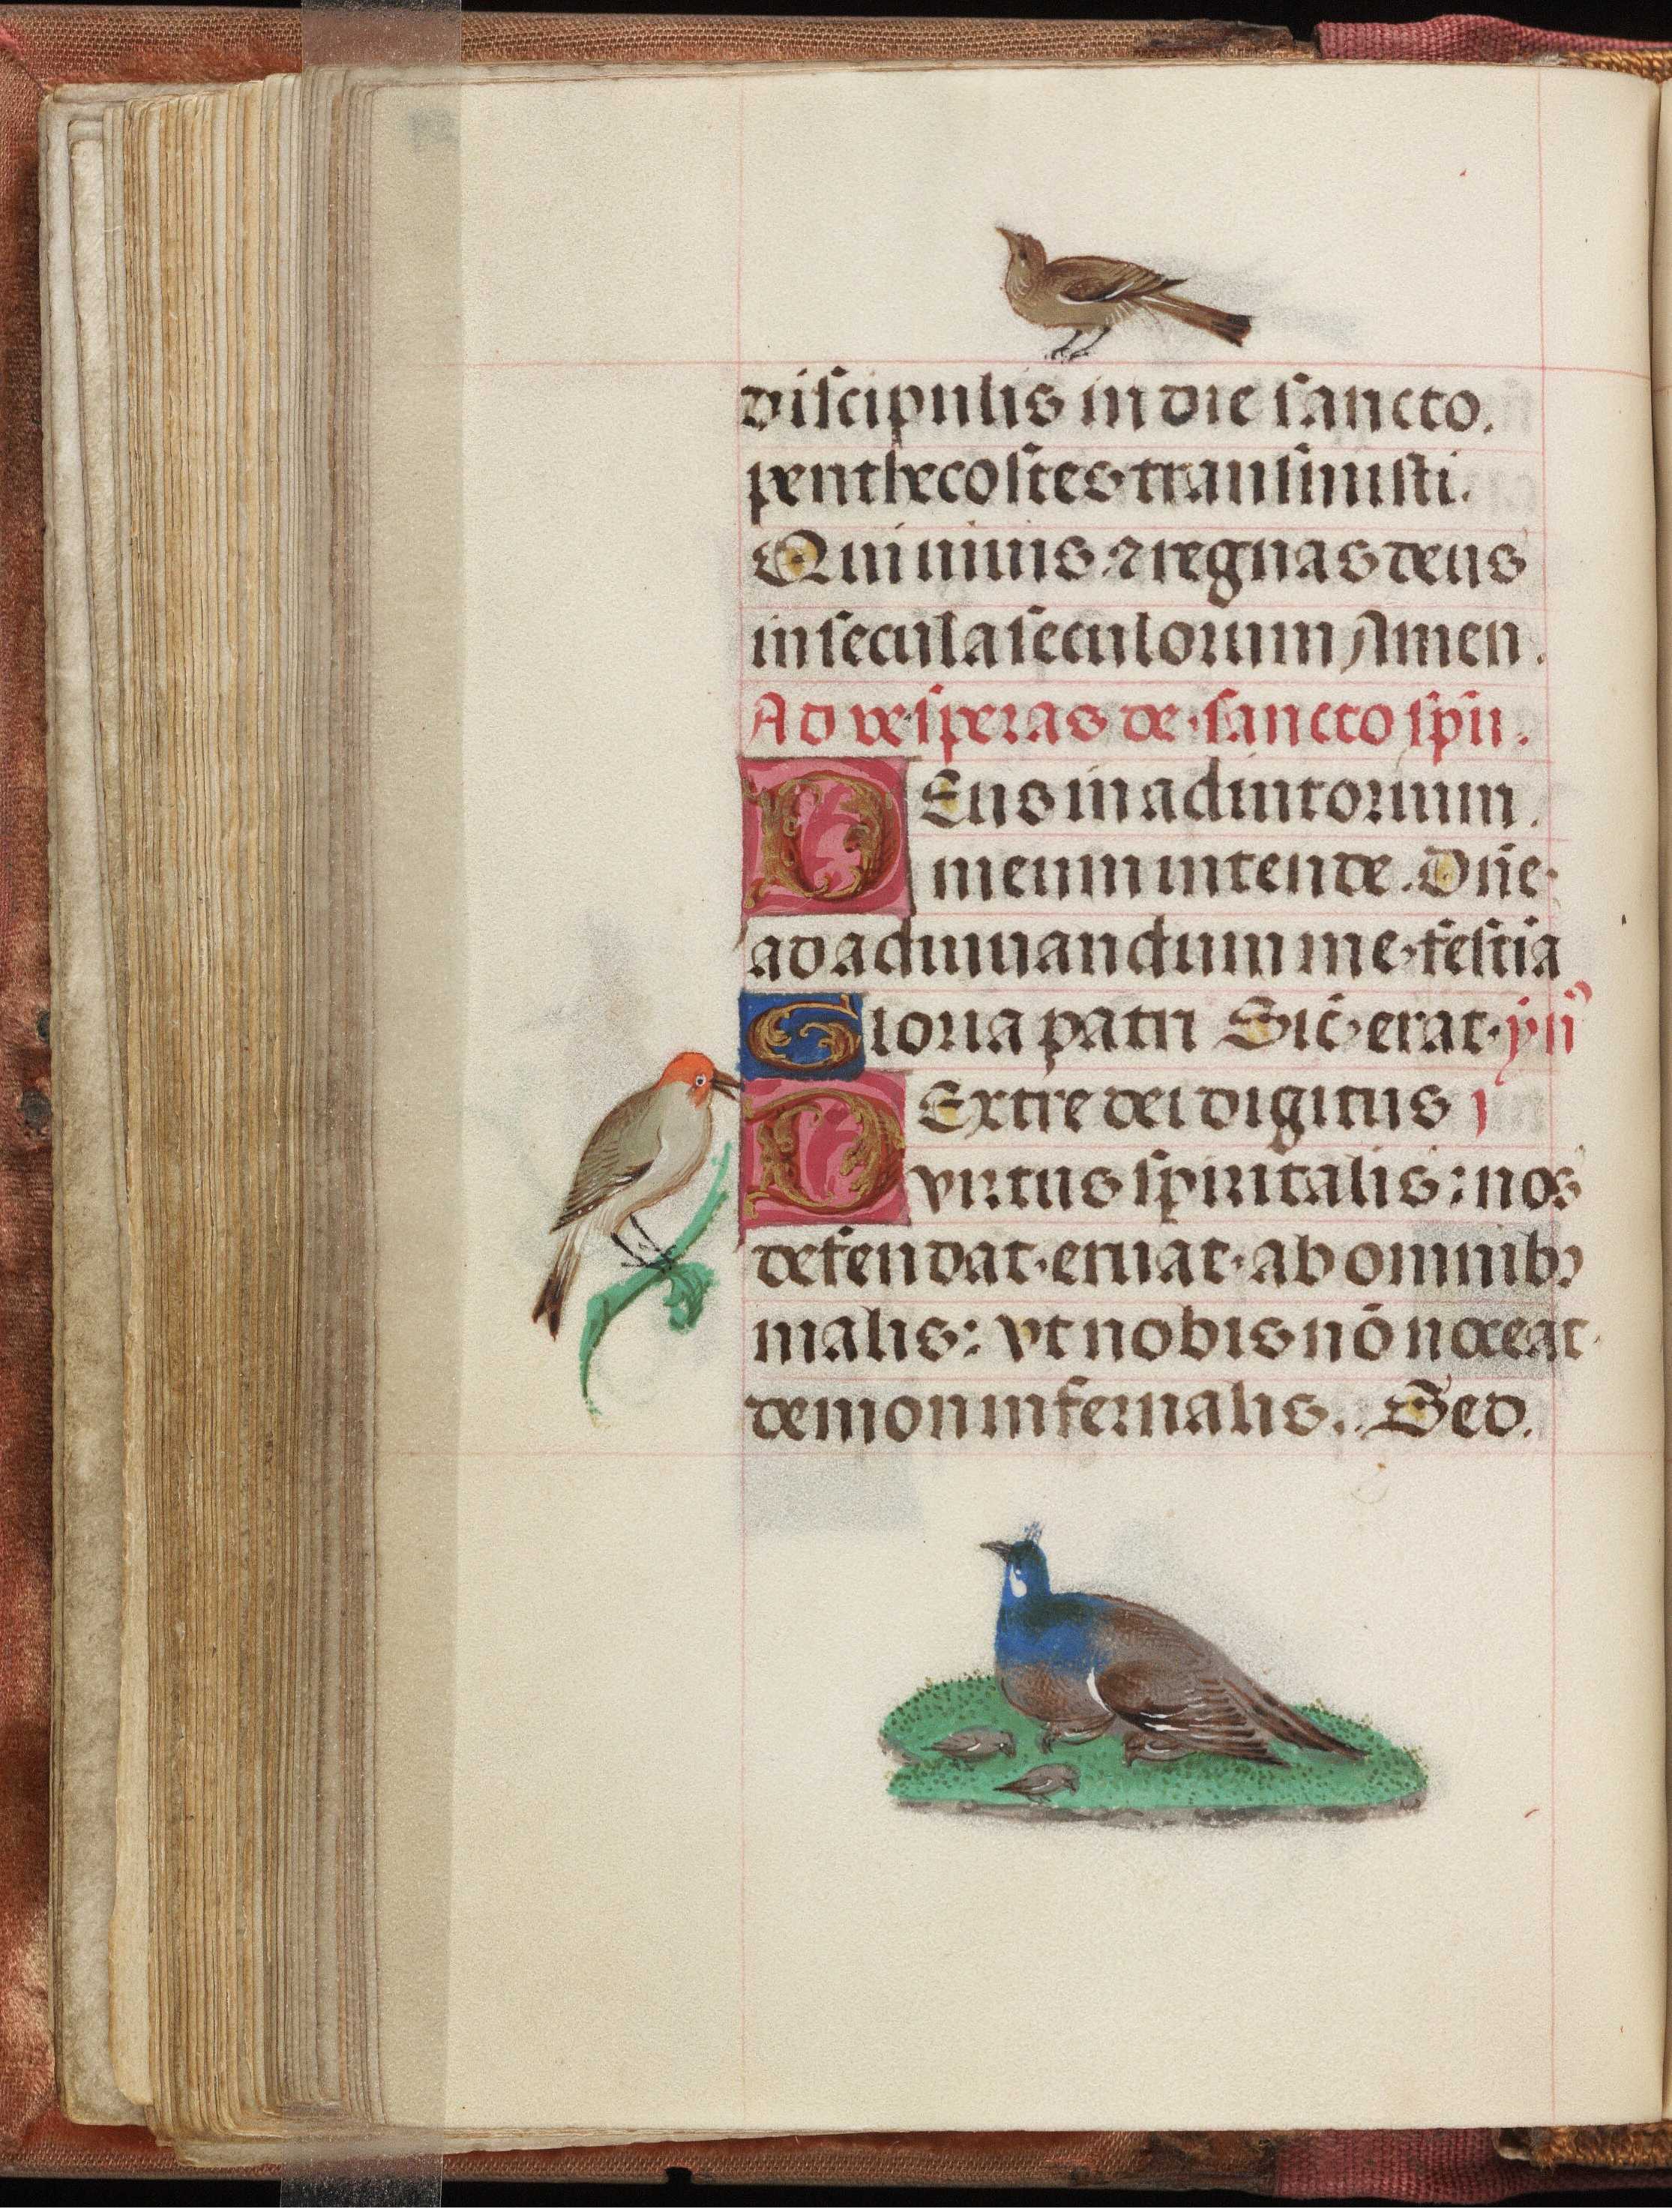 discipulis in die sancto.
penthecostes transmisti.
Qui viuis ⁊ regnas deus
in secula seculorum Amen.
Ad vesperas de sancto spū.
DEus in adiutorium.
meum intende. Dñe
ad adiuuandum me festīa
Gloria patri Sic̄ erat yn̄
DExtre dei digitus
virtus spiritalis: nos
defendat eruat ab omnibꝫ
malis: vt nobis nō noceat
demon infernalis. Sed.